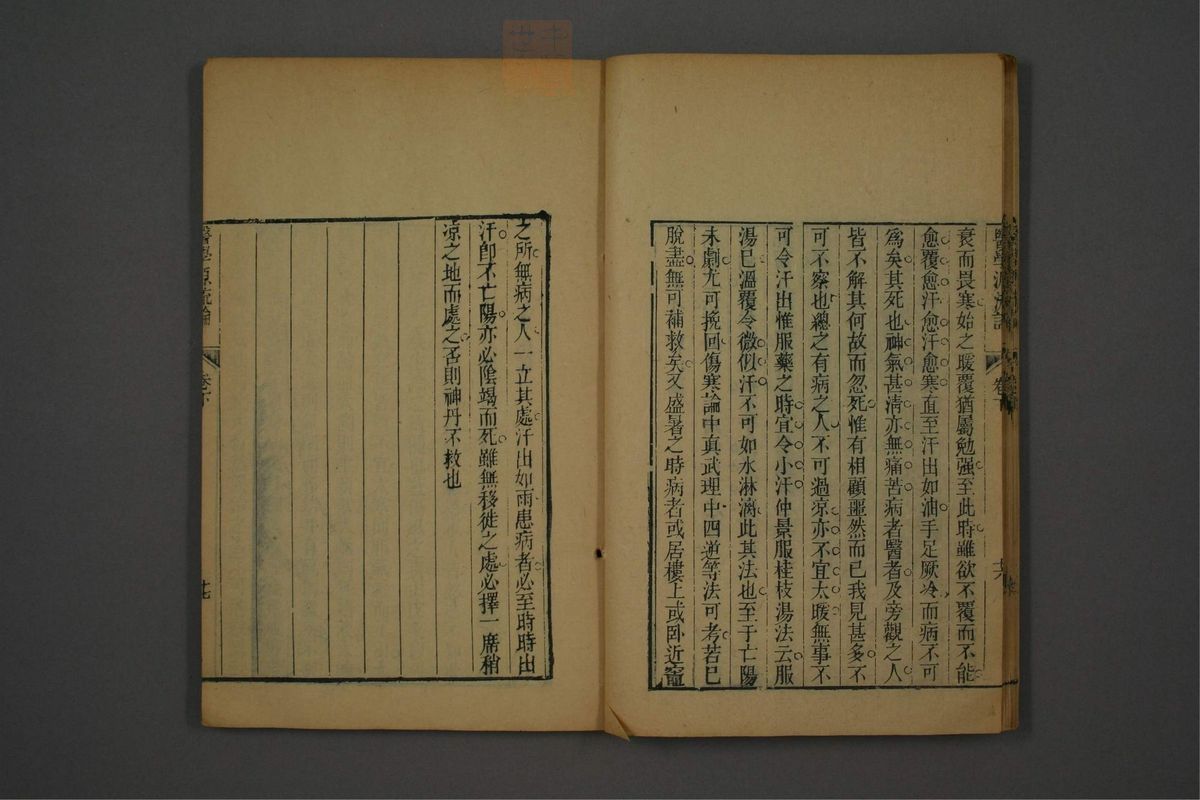 衰而畏寒始之暖覆猶屬勉强至此時雖欲不覆而不能
愈覆愈汗愈汗愈寒直至汗出如油手足厥冷而病不可
爲矣其死也神氣甚清亦無痛苦病者醫者及旁觀之人
皆不解其何故而忽死惟有相顧噩然而已我見甚多不
可不察也總之有病之人不可過凉亦不宜太暖無事不
可令汗出惟服藥之時宜令小汗仲景服桂枝湯法云服
湯已溫覆令微似汗不可如水淋漓此其法也至于亡陽
未劇尤可挽回傷寒論中真武理中四逆等法可考若已
脫盡無可補救矣又盛暑之時病者或居樓上或卧近竈
之所無病之人一立其處汗出如雨患病者必至時時出
汗即不亡陽亦必陰竭而死雖無移徙之處必擇一席稍
凉之地而處之否則神丹不救也
醫學源流論
卷下
十七